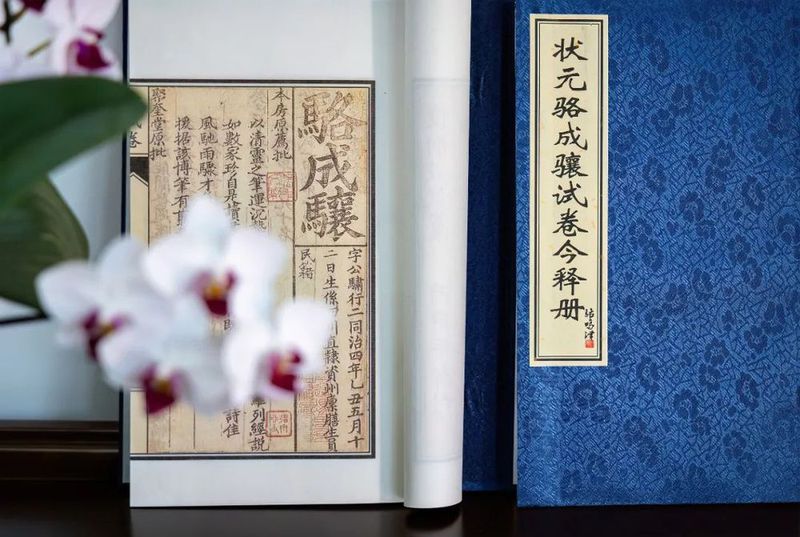 状元骆成骧试卷今释册
駱成驤
字公驌行二同治四年乙丑五月十
二日生係四川直隸資州廩膳生員
民籍
本房原薦批
以清靈之筆運沉 列經說
如數家珍自是 詩佳
風馳雨驟才
援据該博筆有
聚奎堂原批
卷